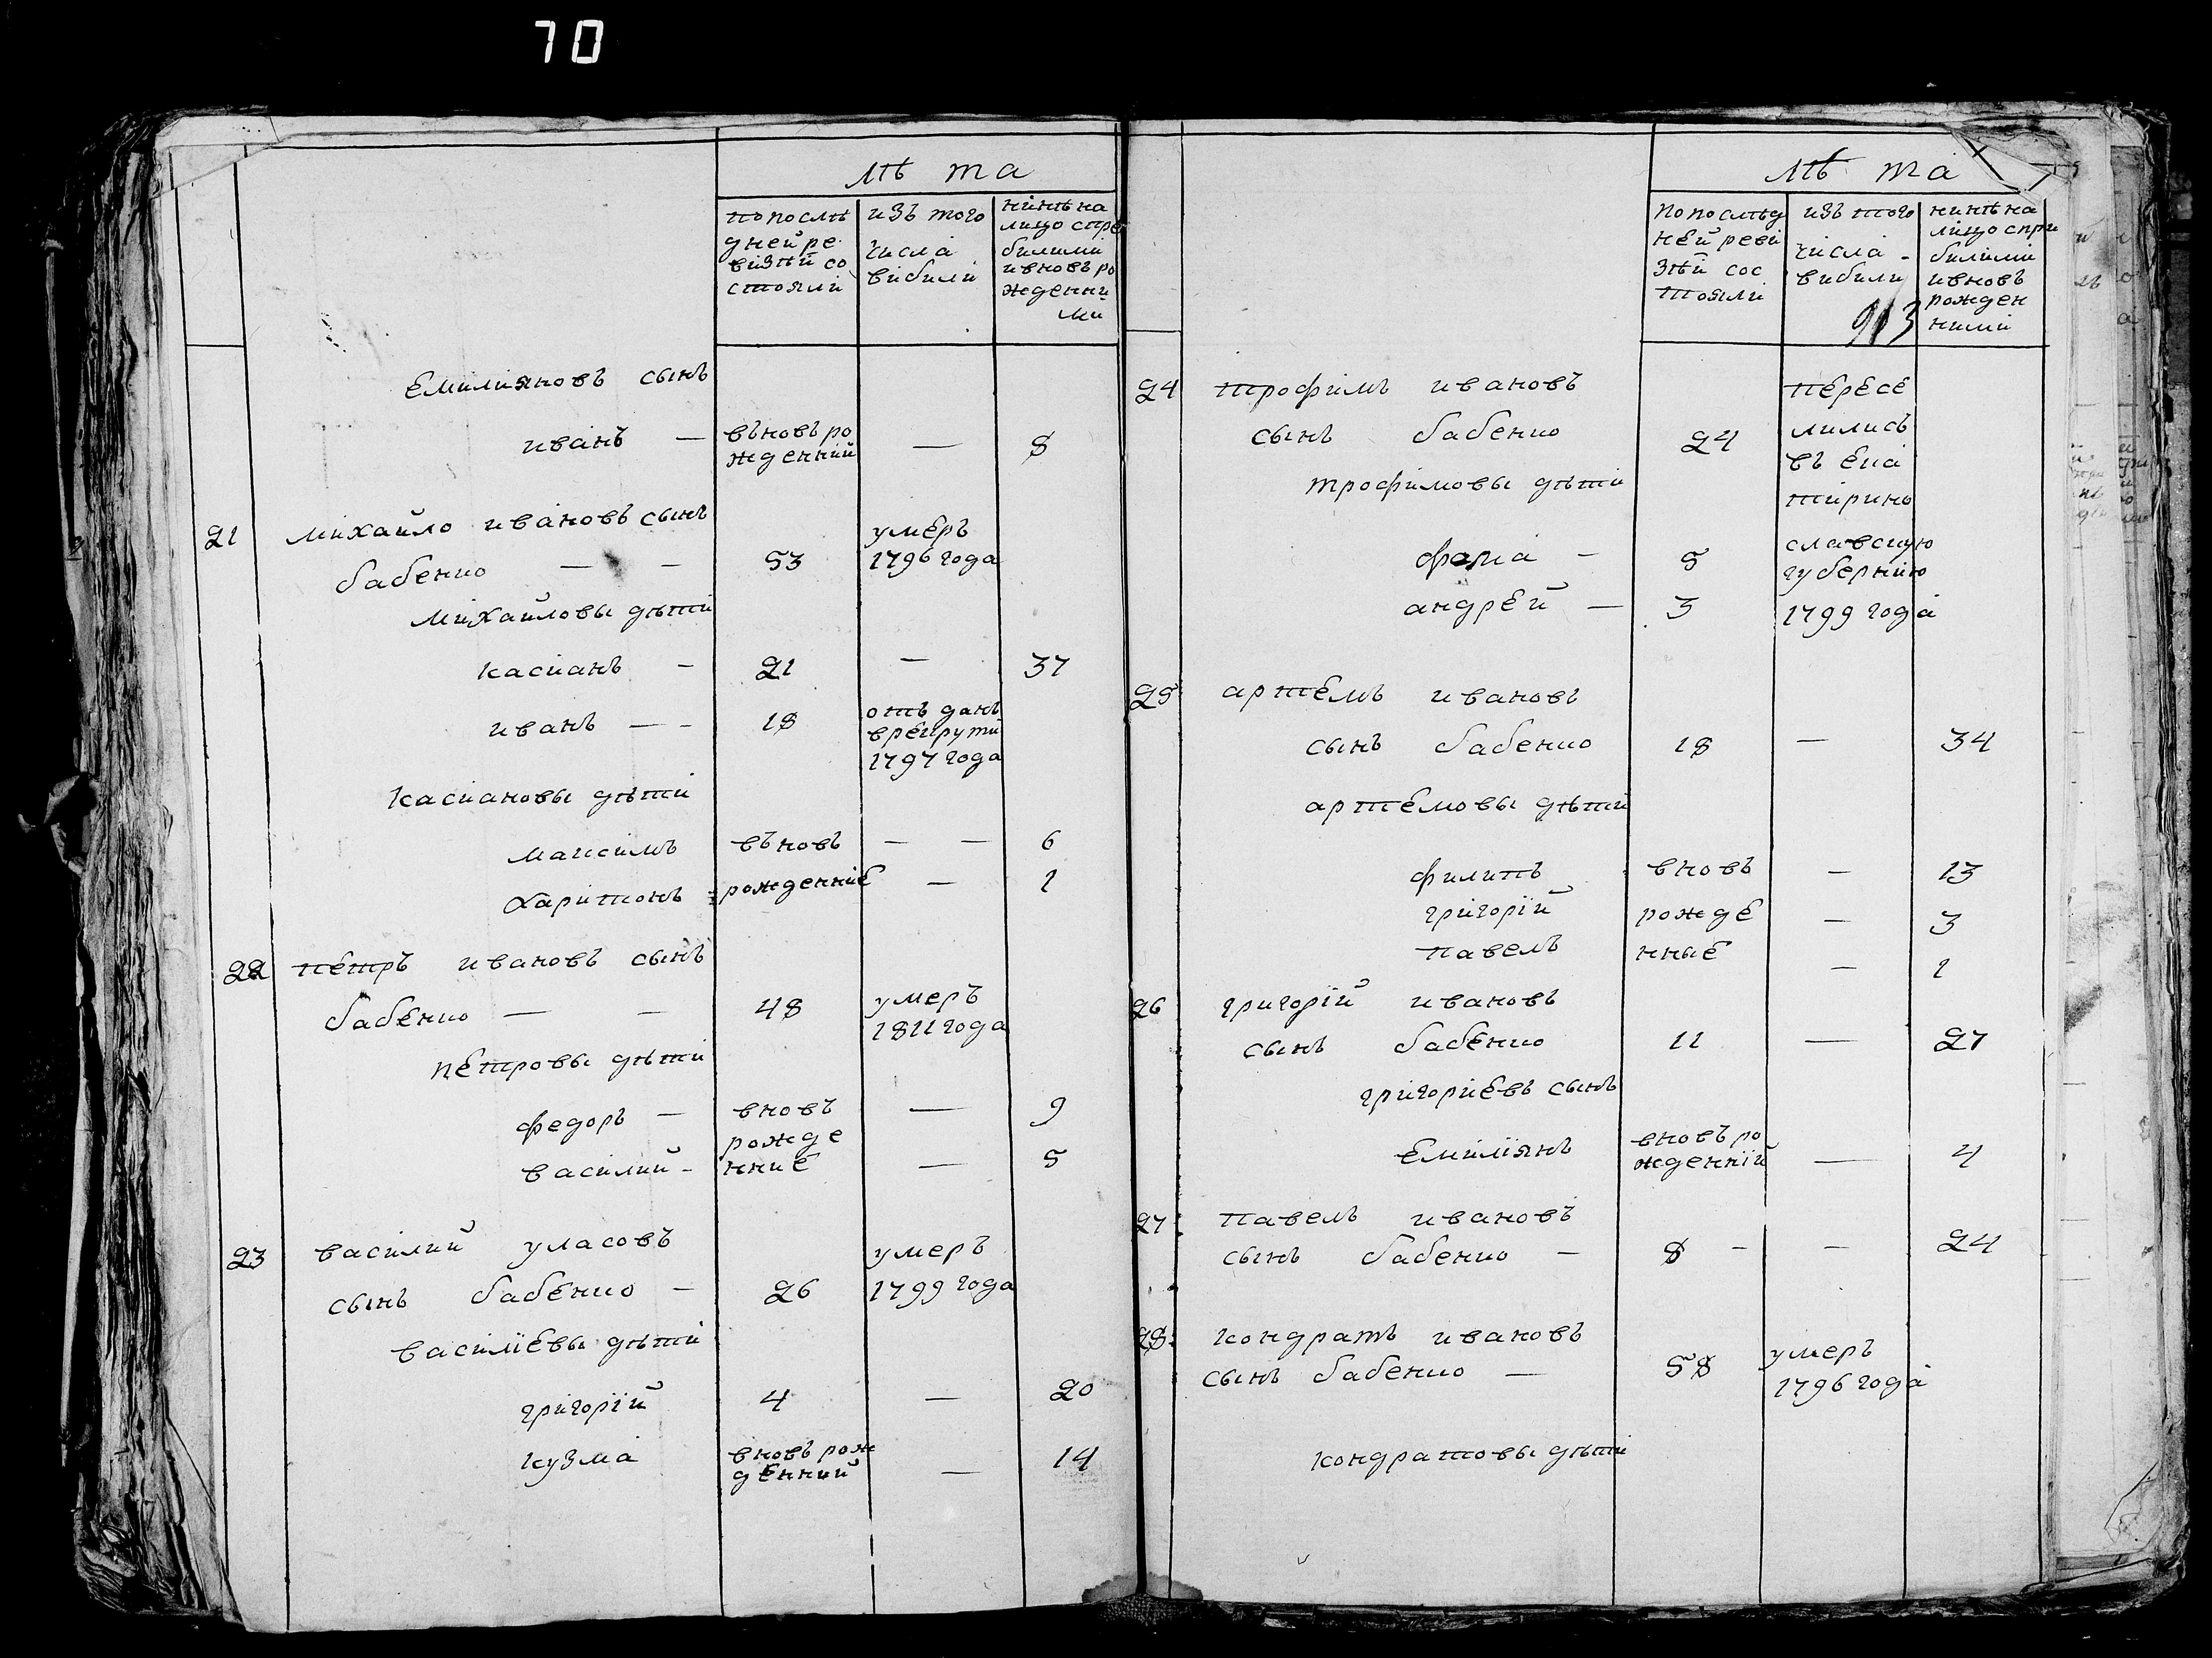 70
лѣ та
попослѣ
дней ре
визѣй со
стояли
изъ того
числа
вибили
нинѣ на
лицо спре
билими
ивновъ ро
жденни
ми
Емилияновъ сынъ
иванъ — вьновь ро
жденний — 8
21 михайло ивановъ сынъ
бабенко — — 53 умеръ
1796 года
михайловы дѣти
касианъ — 21 — 37
иванъ — — 18 отъ данъ
врекрути
1797 года
касиановы дѣти
максимъ вьновь — — 6
харитонъ рожденние — 1
22 петръ ивановъ сынъ
бабенко — — 48 умеръ
1811 года
петровы дѣти
федоръ — вновь — 9
рожде
василий - нние — 5
23 василий уласовъ
сынъ бабенко — 26 умеръ
1799 года
василіевы дѣти
григорій 4 — 20
кузма вновь рож
денний — 14
лѣ та
попослѣд
ней реви
зѣй сос
тояли
изъ того
числа -
вибили
913
нинѣ на
лицо спри
билими
ивновь
рожден
ними
24 трофимъ ивановъ
сынъ бабенко 24
трофимовы дѣти
фома — 5
андрей — 3
пересе
лились
въ ека
тирино
славскую
губернию
1799 года
25 артемъ ивановъ
сынъ бабенко 18 — 34
артемовы дѣти
филипъ вновь — 13
григорій рожде — 3
павелъ нные — 1
26 григорій ивановъ
сынъ бабенко 11 — 27
григориевъ сынъ
Емиліянъ вновь ро
жденній — 4
27 павелъ ивановъ
сынъ бабенко — 8 - — 24
28 кондратъ ивановъ
сынъ бабенко — 58 умеръ
1796 года
кондратовы дѣти